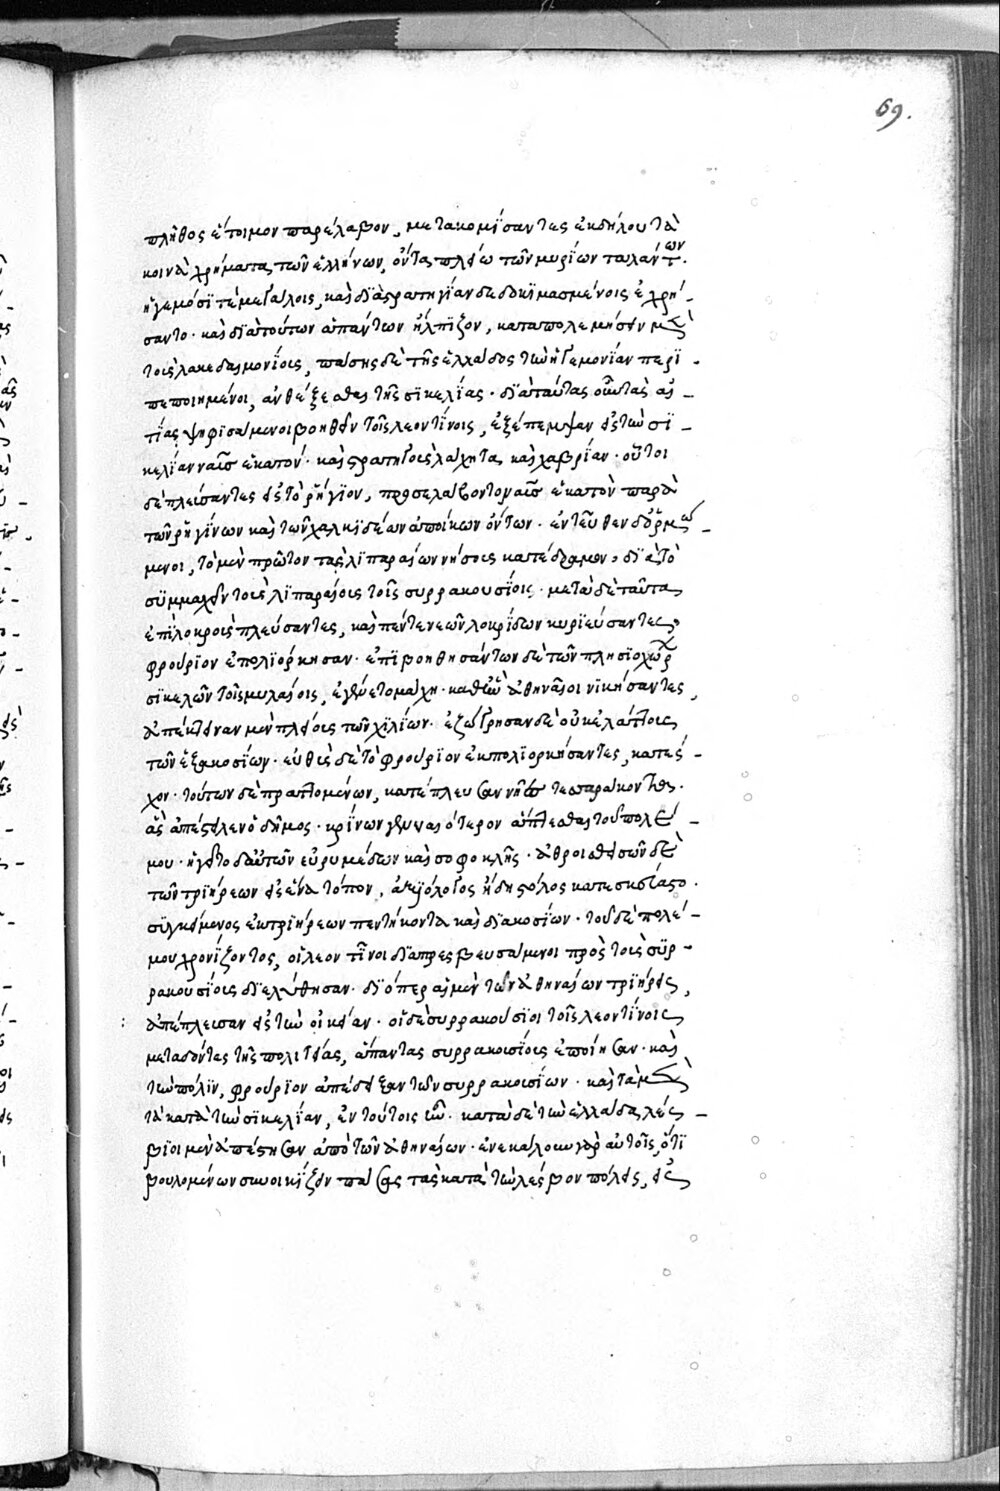 69.
πλῆθος ἕτοιμον παρέλαβον, μετακομίσαντες ἐκ δήλου τὰ
κοινὰ χρήματα τῶν ἑλλήνων, ὄντα πλείω τῶν μυρίων ταλάντων.
ἡγεμόσι τὲ μεγάλοις, καὶ διὰ στρατηγίαν δεδοκιμασμένοις ἐχρή-
σαντο· καὶ διὰ τούτων ἁπάντων ἤλπιζον, καταπολεμήσειν μὲν
τοὺς λακεδαιμονίους, πάσης δὲ τῆς ἑλλάδος τὼ ἡγεμονίαν περι-
πεποιημένοι, ἀνθέξεσθαι τῆς σικελίας· διὰ ταύτας οὖν τὰς αἰ-
τίας ψηφισάμενοι βοηθεῖν τοῖς λεοντίνοις, ἐξέπεμψαν εἰς τὼ σι-
κελίαν ναῦς ἑκατόν· καὶ στρατηγοὺς λάχητα καὶ χαβρίαν· οὗτοι
δὲ πλεύσαντες εἰς τὸ ῥήγιον, προσελάβοντο ναῦς ἑκατὸν παρὰ
τῶν ῥηγίνων καὶ τῶν χαλκιδέων ἀποίκων ὄντων· ἐντεῦθεν δ' ὁρμώ-
μενοι, τὸ μὲν πρῶτον τὰς λιπαραίων νήσους κατέδραμον, διὰ τὸ
συμμαχεῖν τοὺς λιπαραίους τοῖς συρρακουσίοις· μετὰ δὲ ταῦτα
ἐπὶ λοκροὺς πλεύσαντες, καὶ πέντε νεῶν λοκρίδων κυριεύσαντες,
φρούριον ἐπολιόρκησαν· ἐπιβοηθησάντων δὲ τῶν πλησιοχώρων
σικελῶν τοῖς μυλαίοις, ἐγένετο μάχη· καθ' ἣν ἀθηναῖοι νικήσαντες,
ἀπέκτειναν μὲν πλείους τῶν χιλίων· ἐζώγρησαν δὲ οὐκ ἐλάττους
τῶν ἑξακοσίων· εὐθὺς δὲ τὸ φρούριον ἐκπολιορκήσαντες, κατέ-
χον· τούτων δὲ πραττομένων, κατέπλευσαν νῆες τεσσαράκοντα·
ἃς ἀπέστειλεν ὁ δῆμος· κρίνων γενναιότερον ἅπτεσθαι τοῦ πολέ-
μου· ἡγεῖτο δ' αὐτῶν εὐρυμέδων καὶ σοφοκλῆς· ἀθροισθεισῶν δὲ
τῶν τριήρεων εἰς ἕνα τόπον, ἀξιόλογος ἤδη στόλος κατεσκεύαστο·
συγκείμενος ἐκ τριήρεων πεντήκοντα καὶ διακοσίων· τοῦ δὲ πολέ-
μου χρονίζοντος, οἱ λεοντῖνοι διαπρεσβευσάμενοι πρὸς τοὺς συρ-
ρακουσίους διελύθησαν· διόπερ αἱ μὲν τῶν ἀθηναίων τριήρεις,
ἀπέπλευσαν εἰς τὼ οἰκείαν· οἱ δὲ συρρακούσιοι τοῖς λεοντίνοις
μεταδόντες τῆς πολιτείας, ἅπαντας συρρακουσίους ἐποίησαν· καὶ
τὼ πόλιν, φρούριον ἀπέδειξαν τῶν συρρακουσίων· καὶ τὰ μὲν
τὰ κατὰ τὼ σικελίαν, ἐν τούτοις ἦν· κατὰ δὲ τὼ ἑλλάδα λέσ-
βιοι μὲν ἀπέστησαν ἀπὸ τῶν ἀθηναίων· ἐνεκάλουν γὰρ αὐτοῖς, ὅτι
βουλομένων συνοικίζειν πάσας τὰς κατὰ τὼ λέσβον πόλεις, εἰς